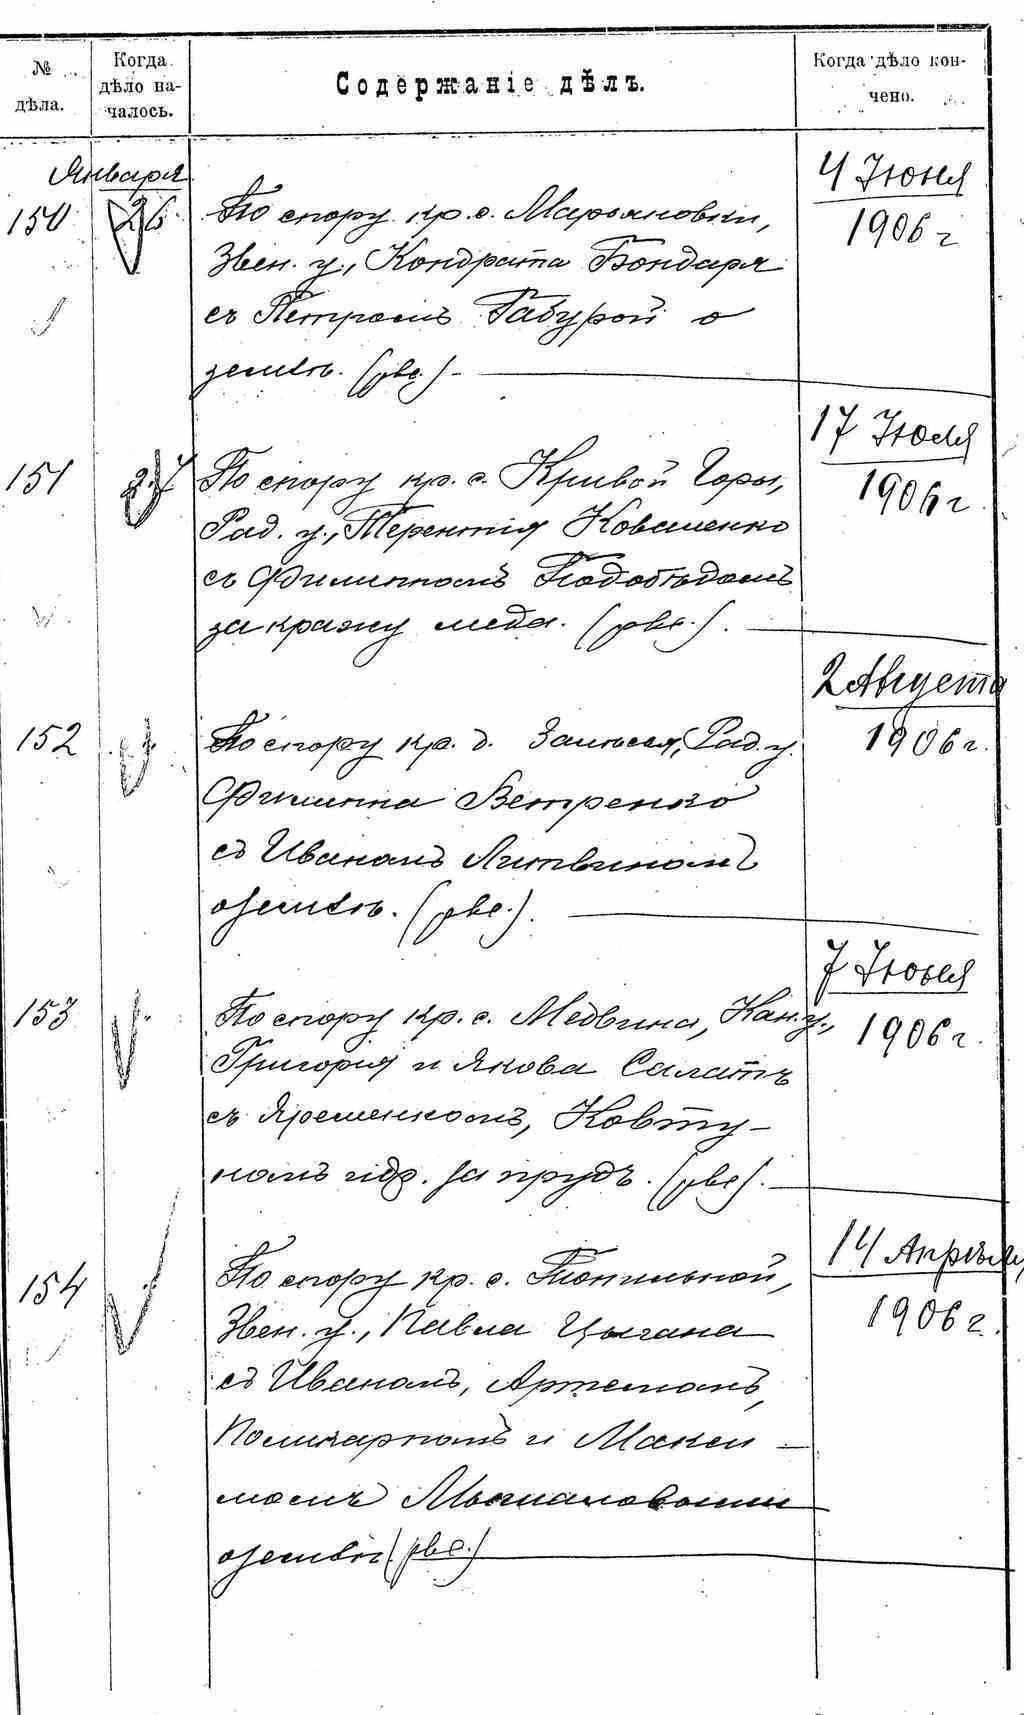 № дѣла.
Когда дѣло началось.
Содержаніе дѣлъ.
Когда дѣло кончено.
Января
150
26
По спору кр. с. Марьяновки,
Звен. у., Кондрата Бондаря
съ Петромъ Габурой о
землѣ.
4 Іюня
1906 г
151
27
По спору кр. с. Кривой Горы,
Рад. у., Терентія Коваленко
съ Филиппомъ Подобѣдомъ
за кражу меда.
17 Іюля
1906 г
152
По спору кр. д. Залѣсья, Рад. у.
Филиппа Ветренко
съ Иваномъ Литвиномъ
о землѣ.
2 Августа
1906 г.
153
По спору кр. с. Медвина, Кан. у.,
Григорія и Якова Салатъ
съ Яременкомъ, Ковту-
номъ и др. за прудъ.
7 Іюня
1906 г.
154
По спору кр. с. Топильной,
Звен. у., Павла Цыгана
съ Иваномъ, Артемомъ,
Поликарпомъ и Макси-
момъ
о землѣ
14 Апрѣля,
1906 г.